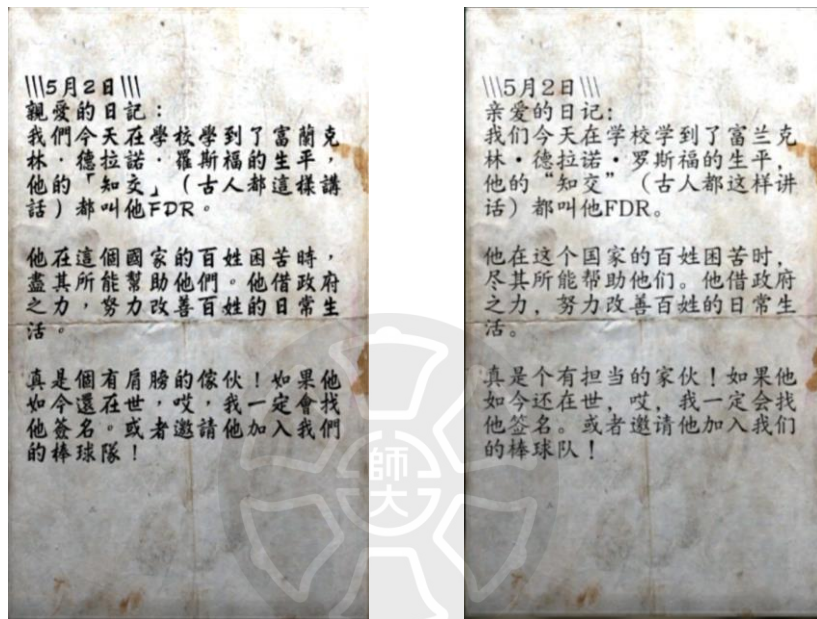 \\\5月2日\\\
親愛的日記：
我們今天在學校學到了富蘭克
林·德拉諾·羅斯福的生平，
他的「知交」（古人都這樣講
話）都叫他FDR。
他在這個國家的百姓困苦時，
盡其所能幫助他們。他借政府
之力，努力改善百姓的日常生
活。
真是個有肩膀的傢伙！如果他
如今還在世，哎，我一定會找
他簽名。或者邀請他加入我們
的棒球隊！
\\\5月2日\\\
亲爱的日记:
我们今天在学校学到了富兰克
林·德拉诺·罗斯福的生平，
他的“知交”（古人都这样讲
话）都叫他FDR。
他在这个国家的百姓困苦时，
尽其所能帮助他们。他借政府
之力，努力改善百姓的日常生
活。
真是个有担当的家伙！如果他
如今还在世，哎，我一定会找
他签名。或者邀请他加入我们
的棒球队！
師大